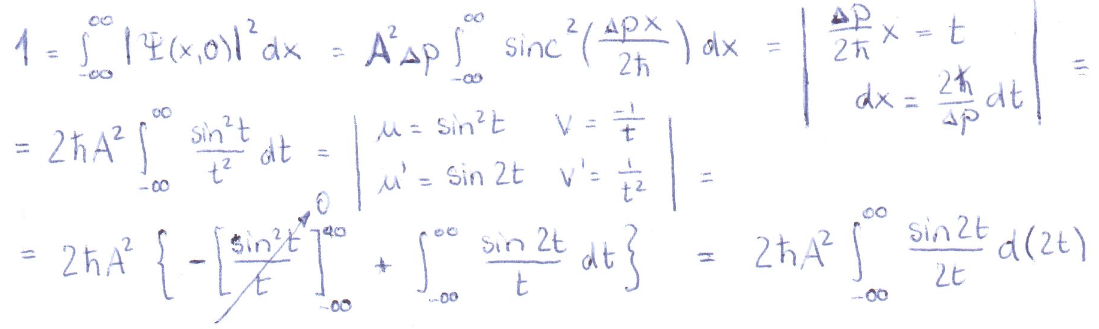 1 = ∫_{-∞}^{∞} |Ψ(x,0)|² dx = A² Δp ∫_{-∞}^{∞} sinc² (Δpx / 2ħ) dx = | Δp/2ħ x = t ; dx = 2ħ/Δp dt | =
= 2ħA² ∫_{-∞}^{∞} sin²t / t² dt = | u = sin²t v = -1/t ; u' = sin 2t v' = 1/t² | =
= 2ħA² { - [ sin²t / t ]_{-∞}^{∞} → 0 + ∫_{-∞}^{∞} sin 2t / t dt } = 2ħA² ∫_{-∞}^{∞} sin 2t / 2t d(2t)